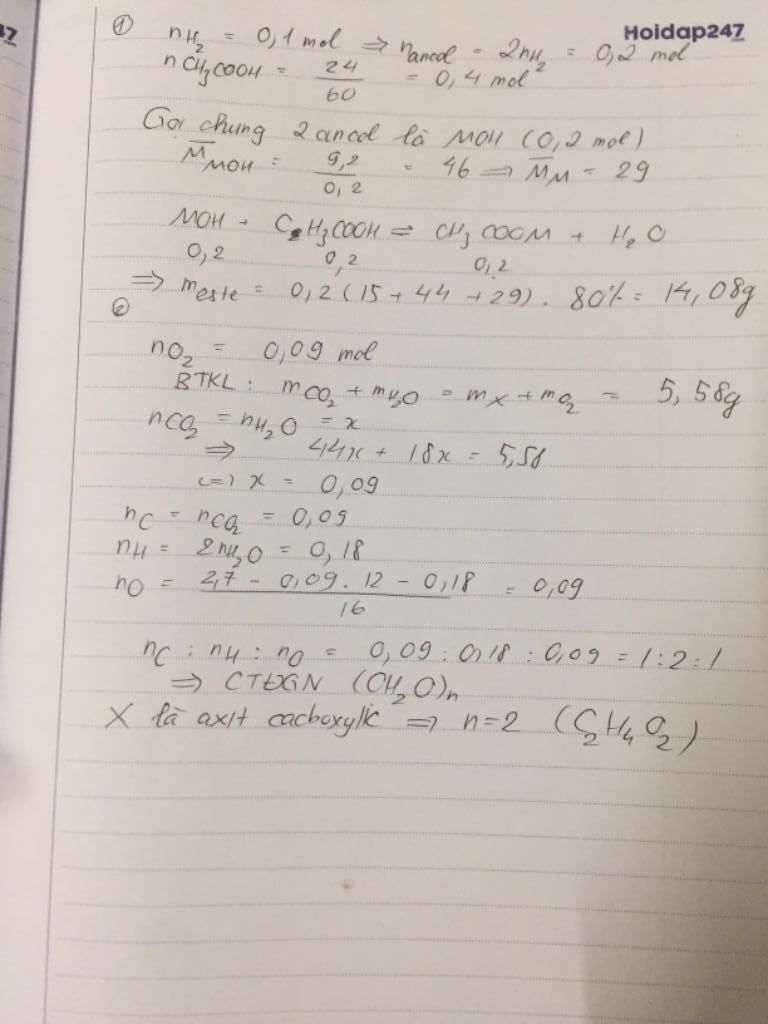 47
Hoidap247
① nH₂ = 0,1 mol ⇒ nancol = 2nH₂ = 0,2 mol
nCH₃COOH = 24/60 = 0,4 mol
Gọi chung 2 ancol là MOH (0,2 mol)
M̅MOH = 9,2/0,2 = 46 ⇒ M̅M = 29
MOH + C₂H₃COOH ⇌ CH₃COOM + H₂O
0,2 0,2 0,2
⇒ meste = 0,2(15 + 44 + 29) . 80% = 14,08g
②
nO₂ = 0,09 mol
BTKL : mCO₂ + mH₂O = mX + mO₂ = 5,58g
nCO₂ = nH₂O = x
⇒ 44x + 18x = 5,58
(=) x = 0,09
nC = nCO₂ = 0,09
nH = 2nH₂O = 0,18
nO = (2,7 - 0,09 . 12 - 0,18)/16 = 0,09
nC : nH : nO = 0,09 : 0,18 : 0,09 = 1 : 2 : 1
⇒ CTĐGN (CH₂O)n
X là axit cacboxylic ⇒ n=2 (C₂H₄O₂)